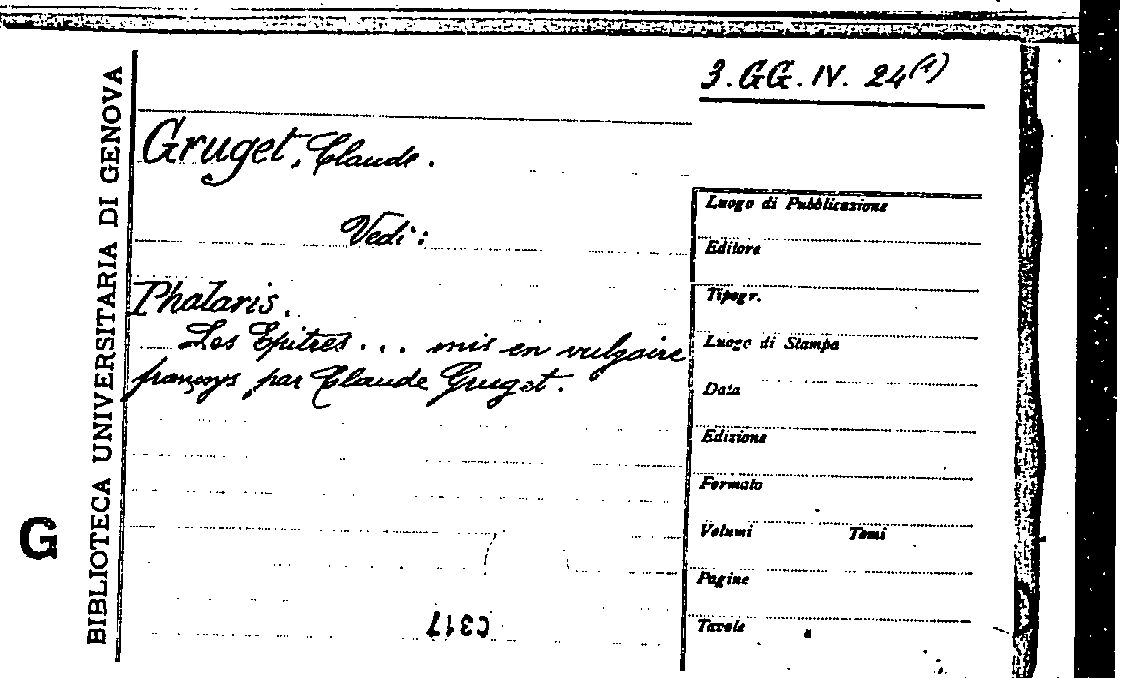 3.GG.IV. 24(1)
BIBLIOTECA UNIVERSITARIA DI GENOVA
G
Gruget, Claude.
Vedi:
Phalaris.
Les Epitres... mis en vulgaire
françoys par Claude Gruget.
Luogo di Pubblicazione
Editore
Tipogr.
Luogo di Stampa
Data
Edizione
Formato
Volumi Tomi
Pagine
Tavole
C317